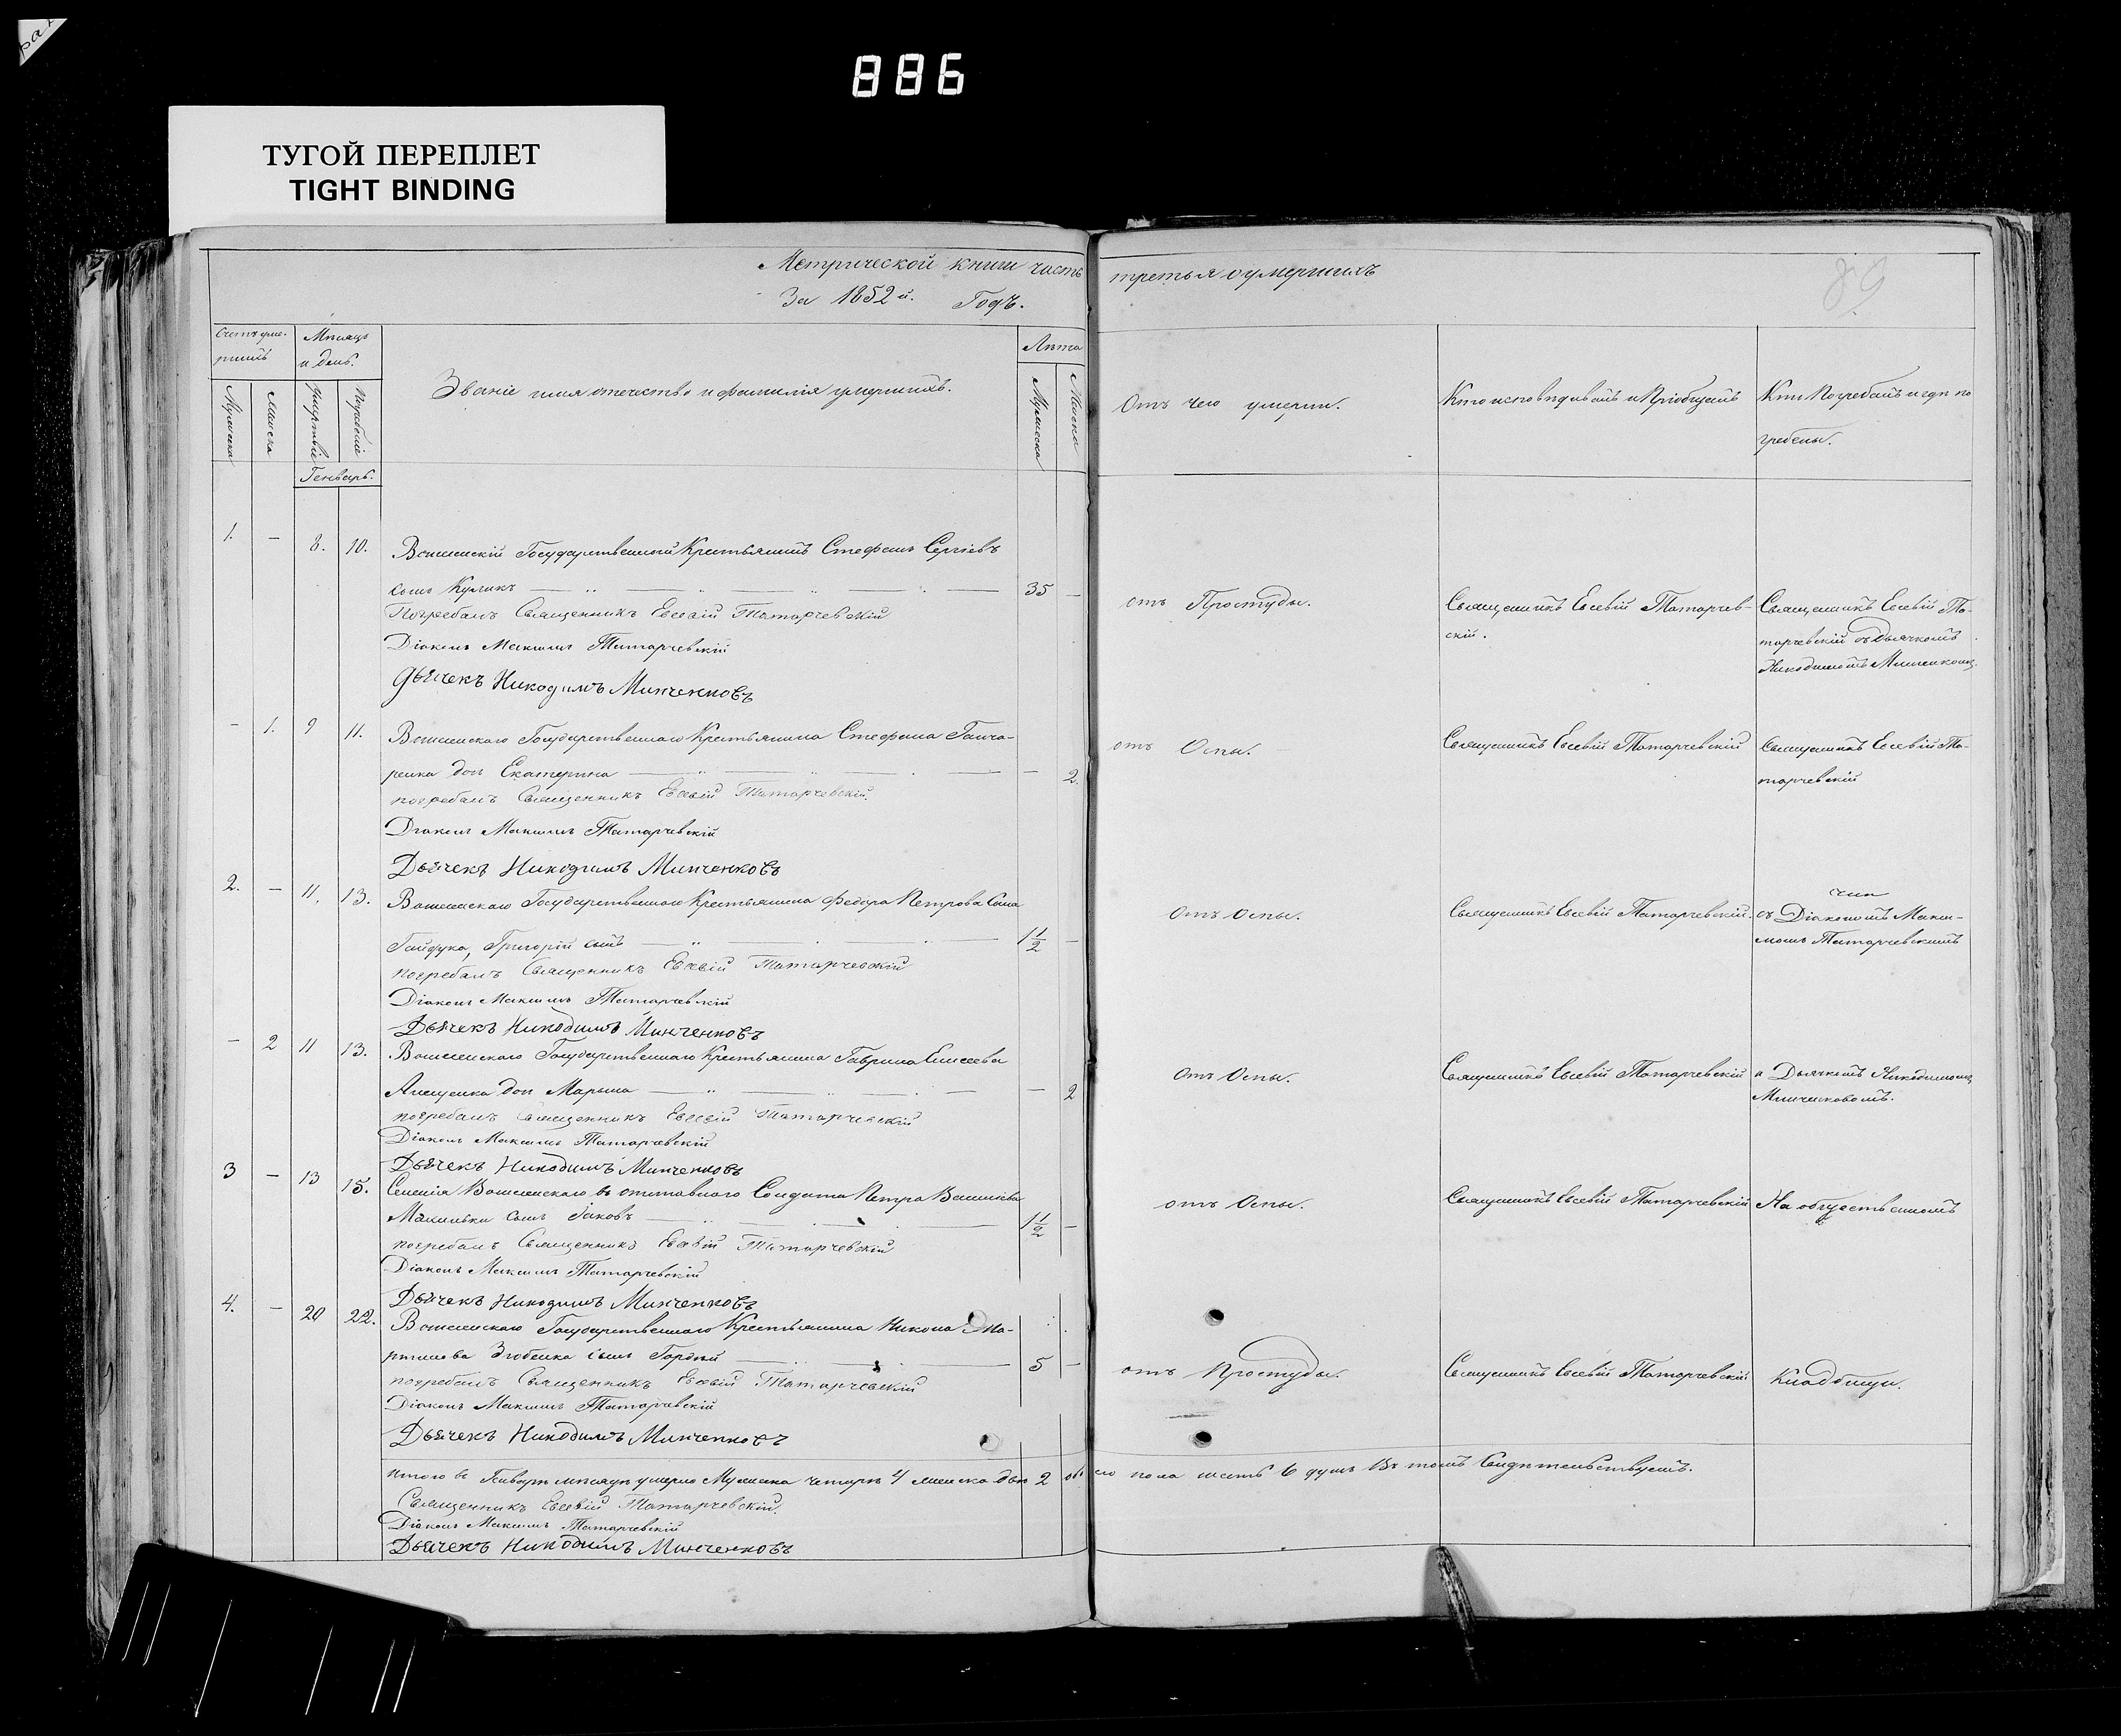 886
ТУГОЙ ПЕРЕПЛЕТ
TIGHT BINDING
Метрической книги часть третья о умершихъ
За 1852 й. Годъ.
89
Счетъ уме-
ршихъ
Мѣсяцъ
и день.
Лѣта
Званіе имя отечество и фамилія умершихъ.
Отъ чего умерли.
Кто исповѣдывалъ и Пріобщалъ
Кто Погребалъ и гдѣ по
гребены.
Женска
Погребенія
Женска
Генварь.
1. — 8. 10. Государственный Крестьянинъ Стефанъ Сергіевъ
сынъ Куликъ 35 —
отъ Простуды.
Священникъ Евсевій Татарчев-
скій.
Священникъ Евсевій Та-
тарчевскій съ Дьячкомъ
Никодимомъ
Погребалъ Священникъ Евсевій Татарчевскій
Діаконъ Максимъ Татарчевскій
Дьячекъ Никодимъ Минченковъ
— 1. 9 11. Государственнаго Крестьянина Стефана Ганча-
ренка дочь Екатерина — 2.
отъ Оспы.
Священникъ Евсевій Татарчевскій
Священникъ Евсевій Та-
тарчевскій
погребалъ Священникъ Евсевій Татарчевскій.
Діаконъ Максимъ Татарчевскій
Дьячекъ Никодимъ Минченковъ
2. — 11. 13. Государственнаго Крестьянина Федора Петрова Сына
Гайдука, Григорій сынъ 1 1/2 —
Отъ Оспы.
Священникъ Евсевій Татарчевскій.
съ Діакономъ Макси-
момъ Татарчевскимъ
погребалъ Священникъ Евсевій Татарчевскій
Діаконъ Максимъ Татарчевскій
Дьячекъ Никодимъ Минченковъ
— 2 11 13. Государственнаго Крестьянина Гаврила Елисеева
дочь Марьина — 2
Отъ Оспы.
Священникъ Евсевій Татарчевскій
и Дьячкомъ Никодимомъ
Минченковомъ.
погребалъ Священникъ Евсевій Татарчевскій
Діаконъ Максимъ Татарчевскій
Дьячекъ Никодимъ Минченковъ
3 — 13 15. Селенія отставнаго Солдата Петра
сынъ Іаковъ 1 1/2 —
отъ Оспы.
Священникъ Евсевій Татарчевскій
На общественномъ
погребалъ Священникъ Евсевій Татарчевскій
Діаконъ Максимъ Татарчевскій
Дьячекъ Никодимъ Минченковъ
4. — 20 22. Государственнаго Крестьянина Никона Ма-
ртинова сынъ Гордѣй 5 —
отъ Простуды.
Священникъ Евсевій Татарчевскій
Кладбищи.
погребалъ Священникъ Евсевій Татарчевскій
Діаконъ Максимъ Татарчевскій
Дьячекъ Никодимъ Минченковъ
Итого въ Генварѣ мѣсяцѣ умерло Мужеска четыре 4 женска двѣ 2 обоего пола шесть 6 душъ Въ томъ Свидѣтельствуемъ.
Священникъ Евсевій Татарчевскій.
Діаконъ Максимъ Татарчевскій
Дьячекъ Никодимъ Минченковъ